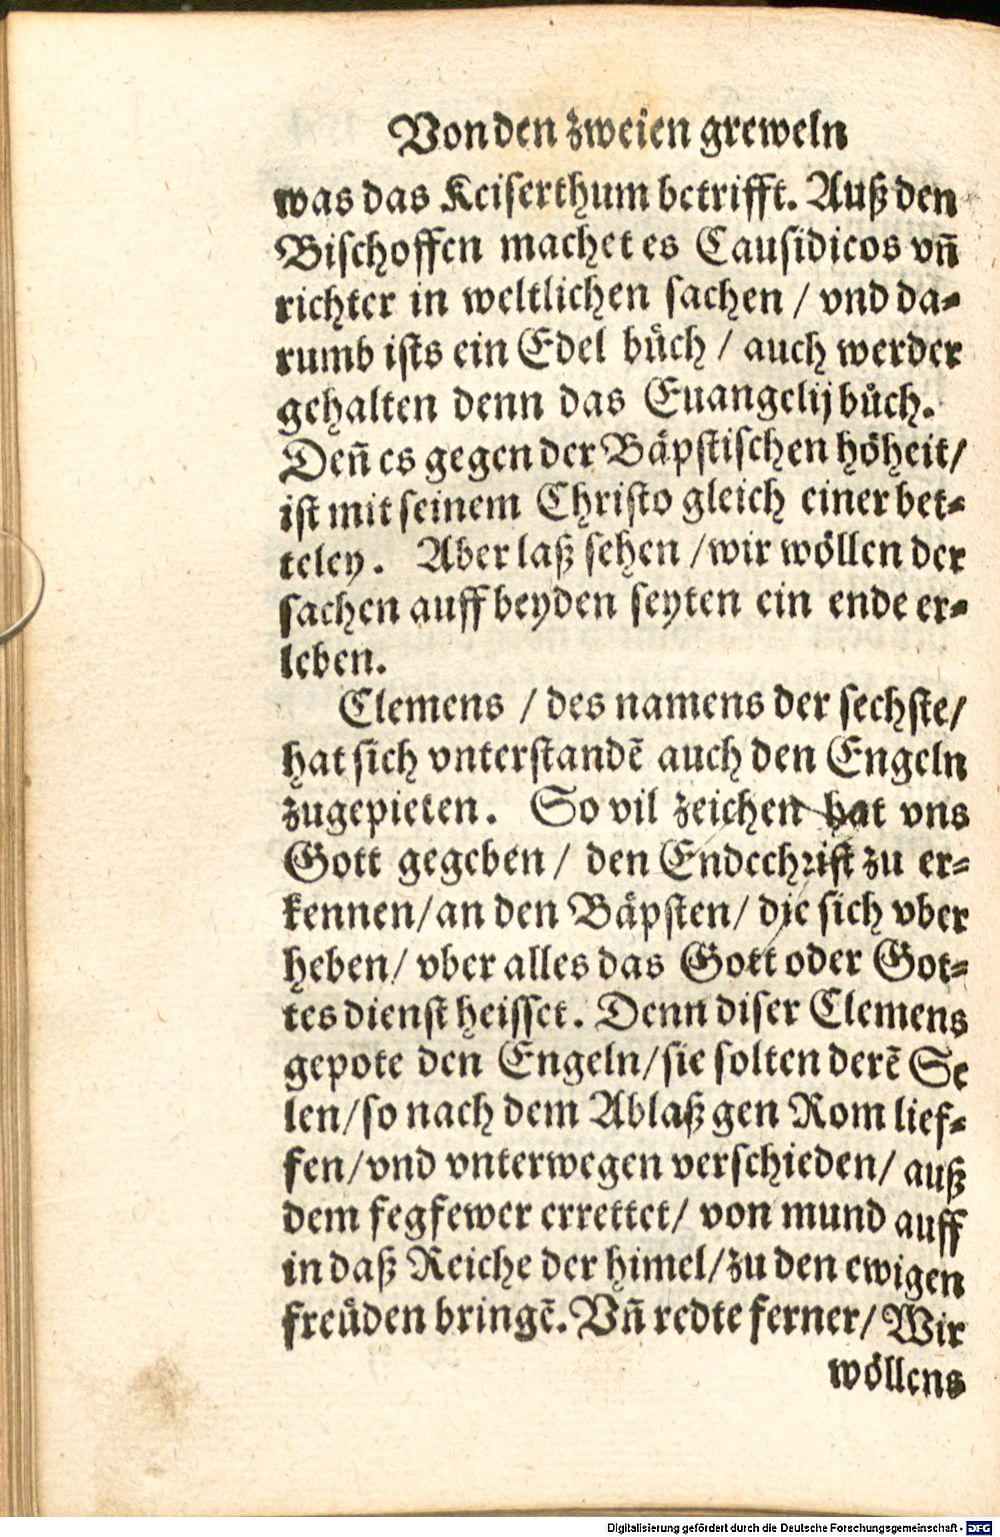 Von den zweien greweln
was das Keiserthum betrifft. Auß den
Bischoffen machet es Causidicos vñ
richter in weltlichen sachen / vnd da-
rumb ists ein Edel bůch / auch werder
gehalten denn das Euangelij bůch.
Deñ es gegen der Bäpstischen höheit/
ist mit seinem Christo gleich einer bet-
teley. Aber laß sehen /wir wöllen der
sachen auff beyden seyten ein ende er-
leben.
Clemens / des namens der sechste/
hat sich vnterstandē auch den Engeln
zugepieten. So vil zeichen hat vns
Gott gegeben/ den Endechrist zu er-
kennen/an den Bäpsten/ die sich vber
heben/ vber alles das Gott oder Got-
tes dienst heisset. Denn diser Clemens
gepote den Engeln/sie solten derē Se
len/so nach dem Ablaß gen Rom lief-
fen/vnd vnterwegen verschieden/ auß
dem fegfewer errettet/ von mund auff
in daß Reiche der himel/zu den ewigen
freüden bringē. Vñ redte ferner/ Wir
wöllens
Digitalisierung gefördert durch die Deutsche Forschungsgemeinschaft - DFG